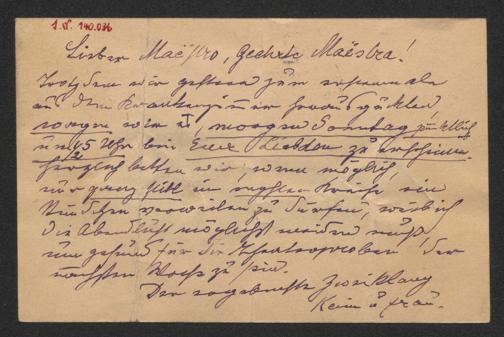 I.N. 140.036
Lieber Maëstro, Geehrte Maëstra!
Trotzdem wir gestern zum erstenmale
aus dem Krankenzimmer
wir morgen Sonntag pünktlich
um ½5 Uhr bei Euer Liebden zu erscheinen.
Herzlich bitten wir, wenn möglich,
nur ganz still im engsten Kreise ein
Stündchen verweilen zu dürfen, weil ich
die Abendluft möglichst meiden muß
um gesund für die Theaterproben der
nächsten Woche zu sein.
Der ergebenste Zweiklang
Keim u Frau.